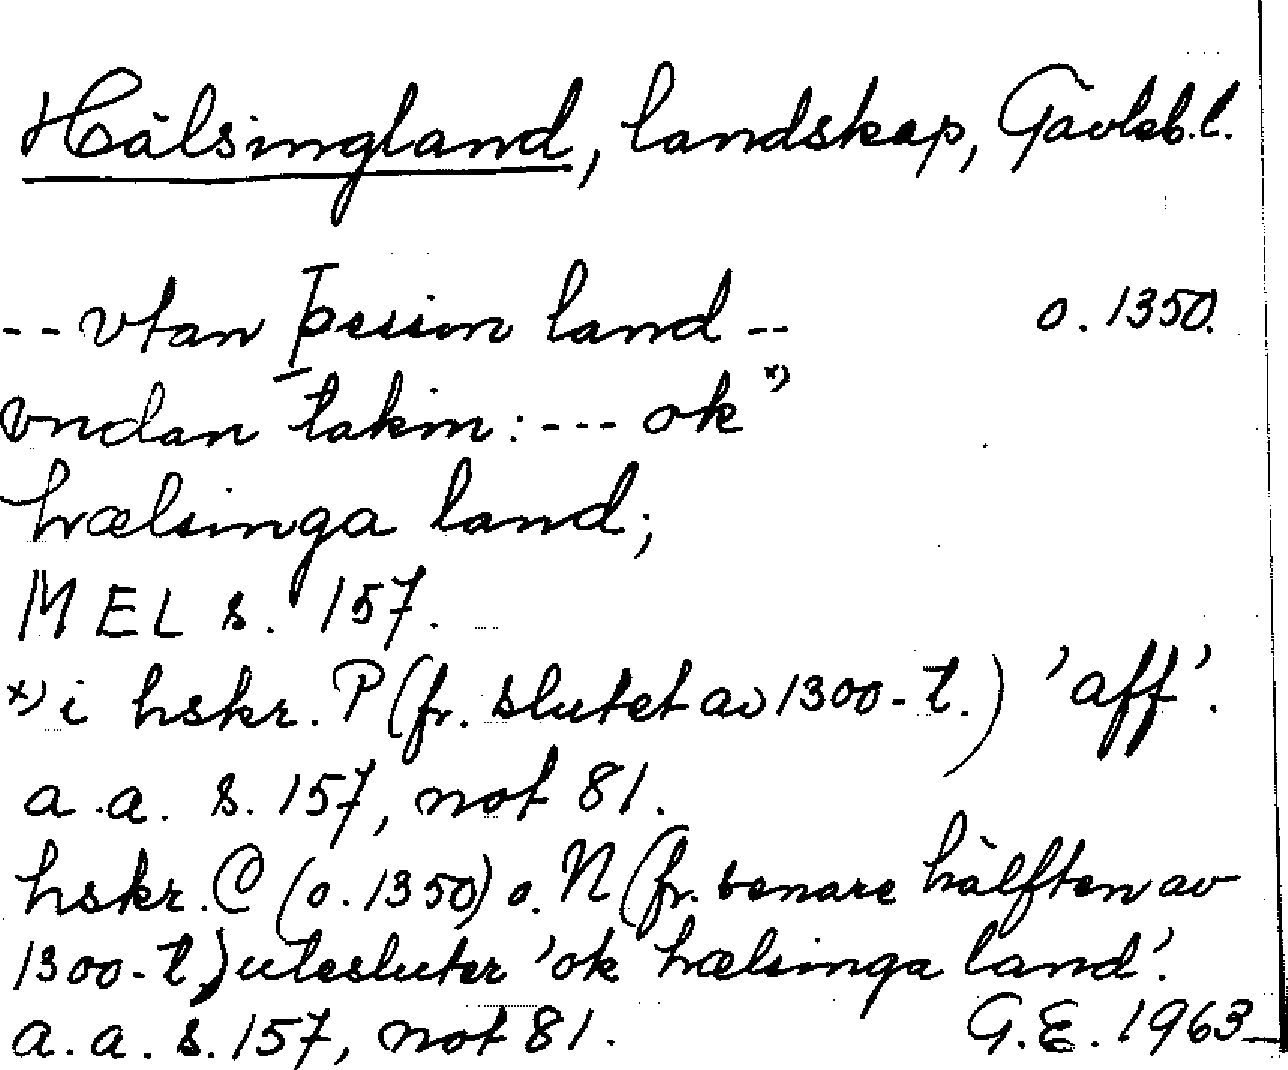 Hälsingland, landskap, Gävleb.l.
-- vtan þessin land -- o. 1350.
vndan takin: --- ok x)
hælsinga land;
MEL s. 157.
x) i hskr. P (fr. slutet av 1300-t.) 'aff'.
a.a. s. 157, not 81.
hskr. C (o. 1350) o. N (fr. senare hälften av
1300-t.) utesluter 'ok hælsinga land'.
a.a. s. 157, not 81. G.E. 1963